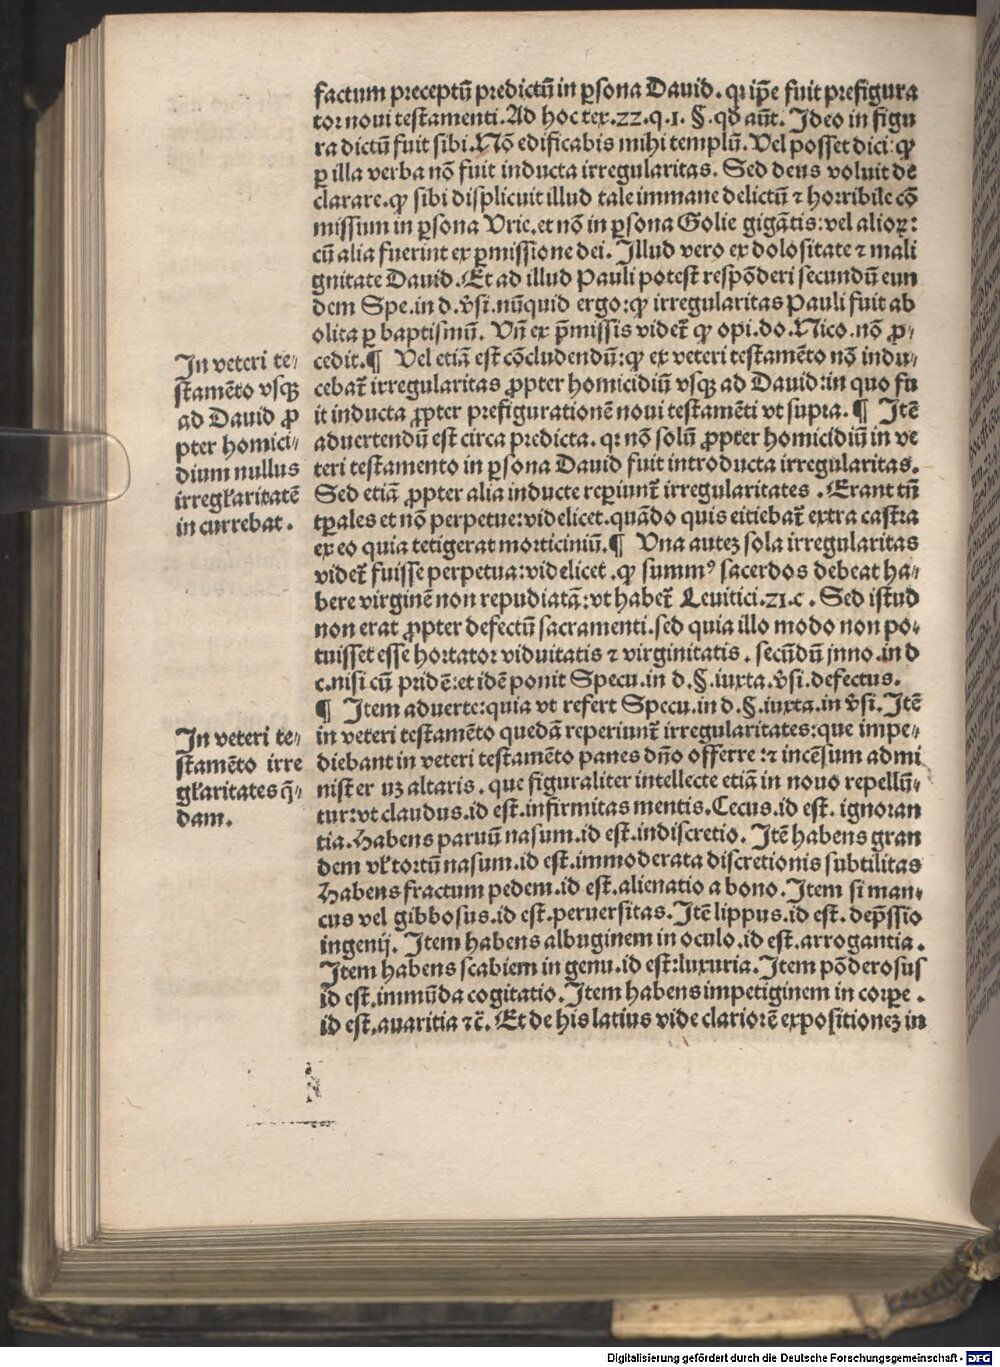 factum preceptū predictū in ꝑsona Dauid. qꝛ ip̄e fuit prefigura
tor noui testamenti. Ad hoc tex. 22. q. 1. §. qđ aūt. Ideo in figu
ra dictū fuit sibi. Nō edificabis mihi templū. Vel posset dici: ꝙ
ꝑ illa verba nō fuit inducta irregularitas. Sed deus voluit de
clarare. ꝙ sibi displicuit illud tale immane delictū ⁊ horribile cō
missum in ꝑsona Vrie. et nō in ꝑsona Golie gigātis: vel alioꝝ:
cū alia fuerint ex ꝑmissione dei. Illud vero ex dolositate ⁊ mali
gnitate Dauid. Et ad illud Pauli potest respōderi secundū eun
dem Spe. in d. v̄si. nūquid ergo: ꝙ irregularitas Pauli fuit ab
olita ꝑ baptismū. Vn̄ ex p̄missis videt̄ ꝙ opi. do. Nico. nō ꝓ⸗
cedit. ¶ Vel etiā est cōcludendū: ꝙ ex veteri testamēto nō indu⸗
cebat̄ irregularitas ꝓpter homicidiū vsqꝫ ad Dauid: in quo fu
it inducta ꝓpter prefigurationē noui testamēti vt supra. ¶ Itē
aduertendū est circa predicta. qꝛ nō solū ꝓpter homicidiū in ve
teri testamento in ꝑsona Dauid fuit introducta irregularitas.
Sed etiā ꝓpter alia inducte reꝑiunt̄ irregularitates. Erant tn̄
tꝑales et nō perpetue: videlicet. quādo quis eitiebat̄ extra castra
ex eo quia tetigerat morticiniū. ¶ Vna autez sola irregularitas
videt̄ fuisse perpetua: videlicet. ꝙ summꝰ sacerdos debeat ha⸗
bere virginē non repudiatā: vt habet̄ Leuitici. 21. c. Sed istud
non erat ꝓpter defectū sacramenti. sed quia illo modo non po⸗
tuisset esse hortator viduitatis ⁊ virginitatis. secūdū jnno. in d
c. nisi cū pridē: et idē ponit Specu. in d. §. iuxta. v̄si. defectus.
¶ Item aduerte: quia vt refert Specu. in d. §. iuxta. in v̄si. Itē
in veteri testamēto quedā reperiunt̄ irregularitates: que impe⸗
diebant in veteri testamēto panes dn̄o offerre: ⁊ incēsum admi
nister uz altaris. que figuraliter intellecte etiā in nouo repellū⸗
tur: vt claudus. id est. infirmitas mentis. Cecus. id est. ignoran
tia. Habens paruū nasum. id est. indiscretio. Itē habens gran
dem vl̄ tortū nasum. id est. immoderata discretionis subtilitas
Habens fractum pedem. id est. alienatio a bono. Item si man⸗
cus vel gibbosus. id est. peruersitas. Itē lippus. id est. dep̄ssio
ingenij. Item habens albuginem in oculo. id est. arrogantia.
Item habens scabiem in genu. id est: luxuria. Item pōderosus
id est. immūda cogitatio. Item habens impetiginem in corpe.
id est. auaritia ⁊c̄. Et de his latius vide clariorē expositionez in
In veteri te⸗
stamēto vsqꝫ
ad Dauid ꝓ
pter homici⸗
dium nullus
irregl̄aritatē
in currebat.
In veteri te⸗
stamēto irre
gl̄aritates q̄⸗
dam.
Digitalisierung gefördert durch die Deutsche Forschungsgemeinschaft - DFG